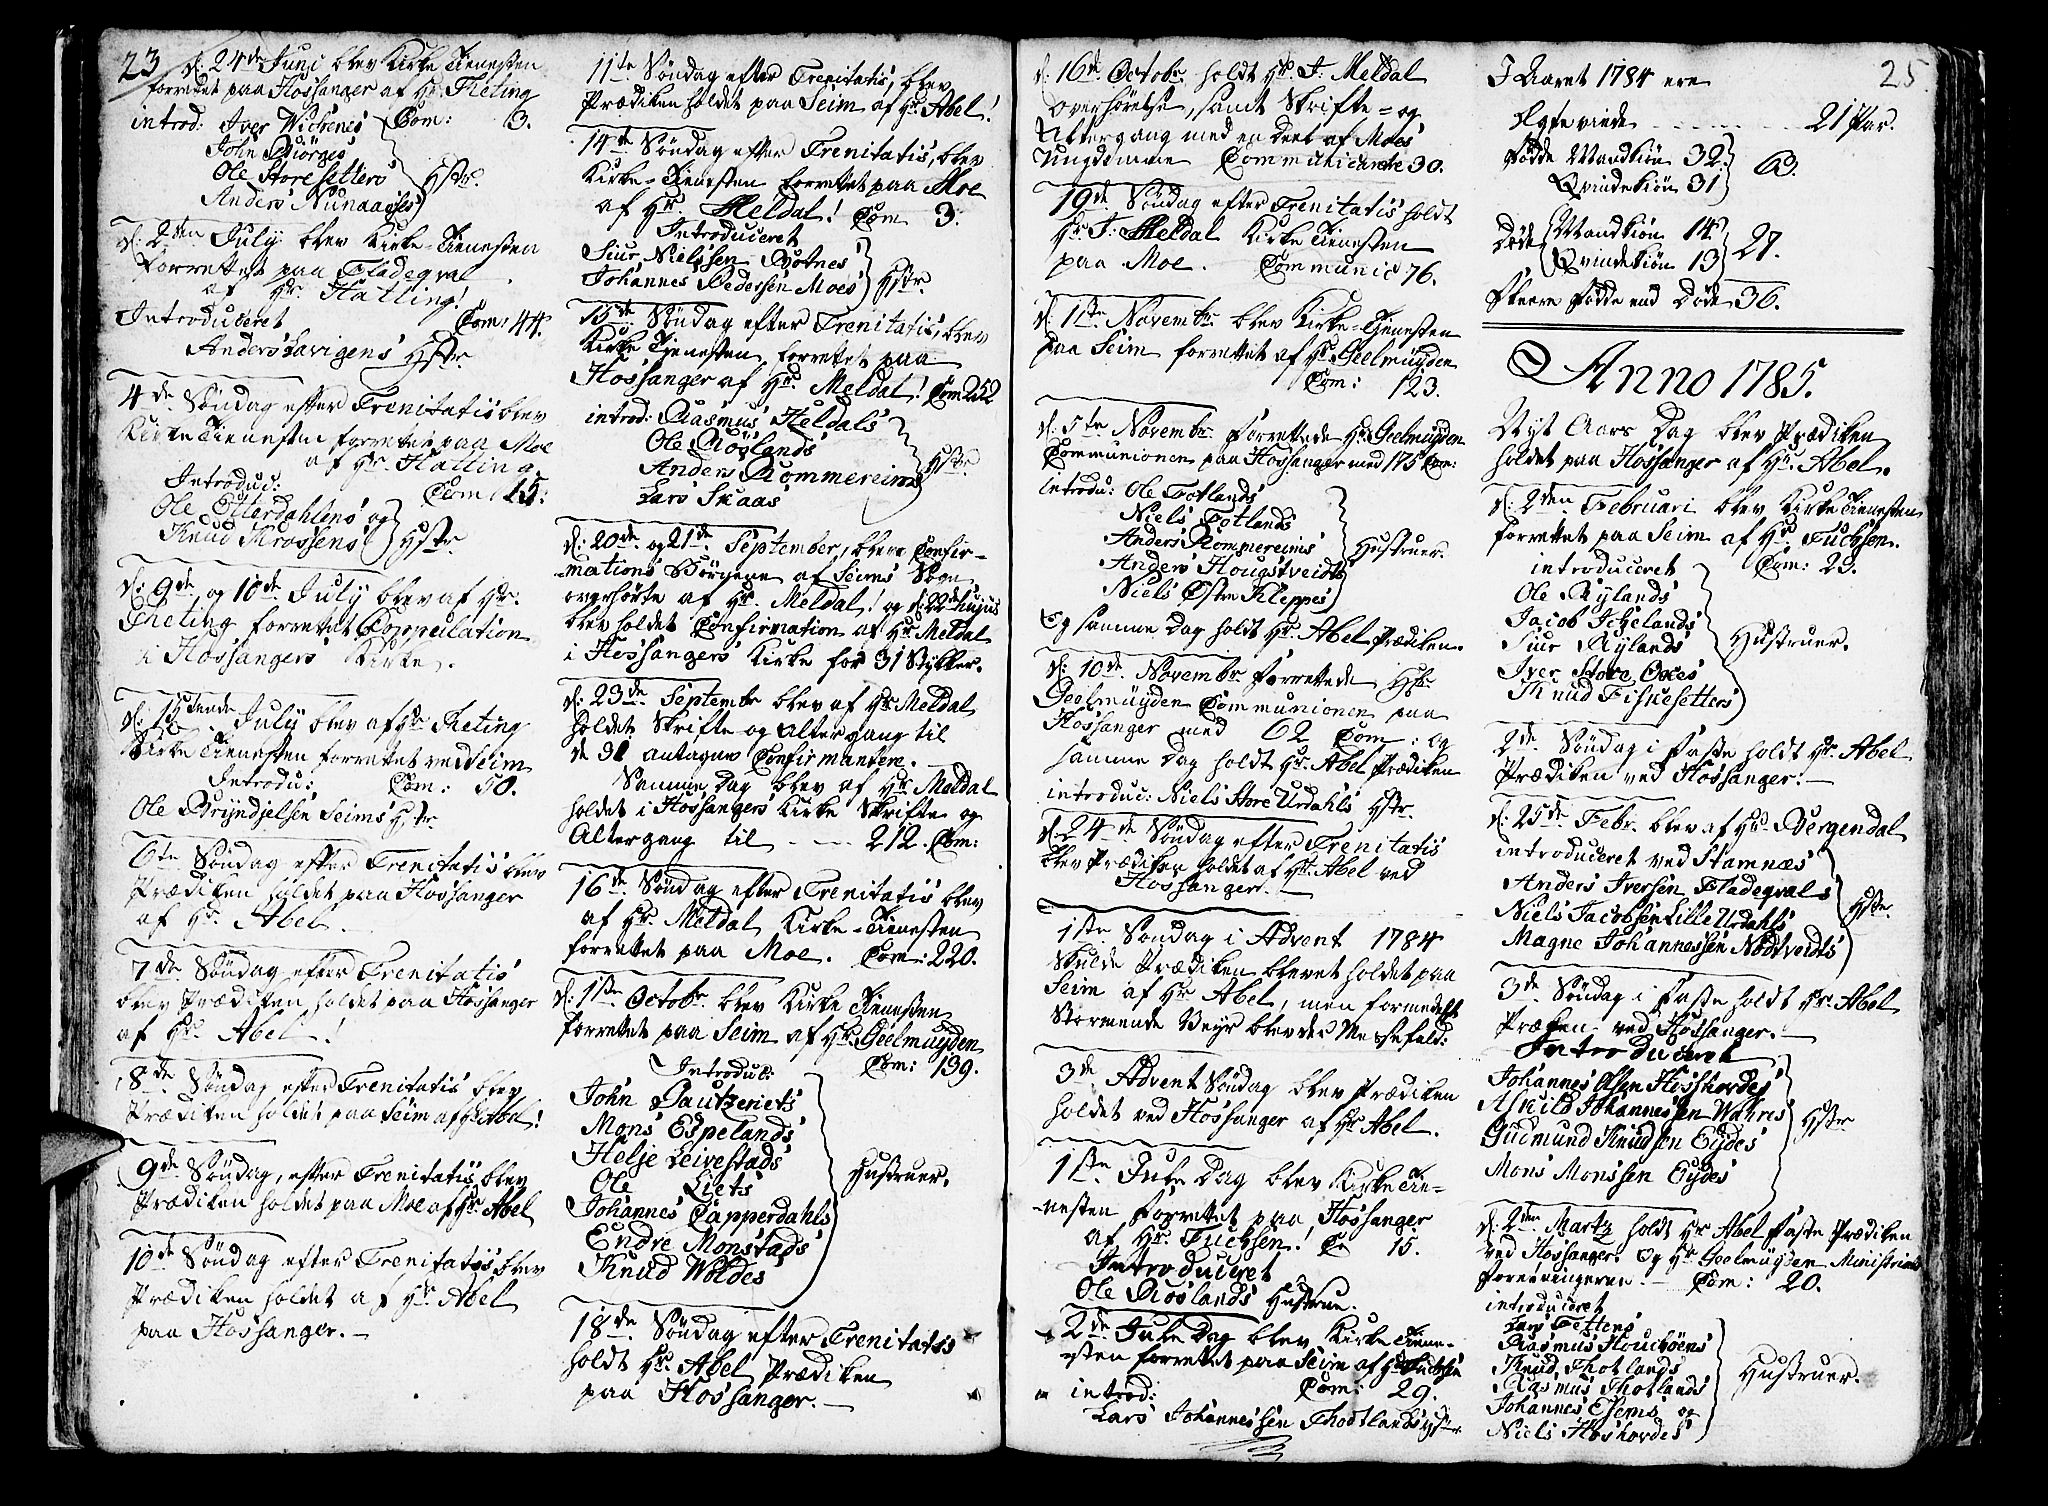 23
d: 24de Junj blev Kirke Tienesten
forrettet paa Hossanger af Hr. Theting
introd: Iver Wichenes Com: 3.
John Biörges
Ole Storesetters Hstr.
Anders Nunaasses
d: 2den July blev Kirke-Tienesten
forrettet paa Fladeqval
af Hr. Hatling!
Introduceret Com: 44.
Anders Lavigens Hstr.
4de Söndag efter Trenitatis blev
Kirke Tienesten forrettet paa Moe
af Hr. Hatling.
Introduc: Com: 15:
Ole Otterdahlens og
Knud Krossens Hstr.
d: 9de og 10de July blev af Hr.
Theting forrettet Copulation
i Hossangers Kirke.
July blev af Hr. Theting
Kirke Tienesten forrettet ved Seim
Introdu: Com: 50.
Ole Bryndjelsen Seims Hstr.
6te Söndag efter Trenitatis blev
Prædiken holdet paa Hossanger
af Hr. Abel.
7de Söndag efter Trenitatis
blev Prædiken holdet paa Hossanger
af Hr. Abel!
8de Söndag efter Trenitatis blev
Prædiken holdet paa Seim af Hr Abel!
9de Söndag, efter Trenitatis blev
Prædiken holdet paa Moe af Hr Abel
10de Söndag efter Trenitatis blev
Prædiken holdet af Hr Abel
paa Hossanger.
11te Söndag efter Trenitatis, blev
Prædiken holdet paa Seim af Hr. Abel!
14de Söndag efter Trenitatis, blev
Kirke-Tienesten forrettet paa Moe
af Hr. Meldal! Com 3.
Introduceret
Siur Nielssen Botnes
Johannes Pedersen Moes Hstr.
15de Söndag efter Trenitatis, blev
Kirke Tienesten, forrettet paa
Hossanger af Hr. Meldal! Com 252
introd: Rasmus Heldals
Ole Röslands
Anders Rommereims Hstr
Lars Skaas
d: 20de og 21de September, bleve Confir-
mations Börnene af Seims Sogn
overhörte af Hr. Meldal! og d: 22de hujus
blev holdet Confirmation af Hr Meldal
i Hossangers Kirke for 31 Stykker.
d: 23de Septembr blev af Hr Meldal
holdet Skrifte og Altergang til
de 31 antagne Confirmantere.
Samme Dag blev af Hr Meldal
holdet i Hossangers Kirke Skrifte og
Altergang til 212. Com:
16de Söndag efter Trenitatis blev
af Hr. Meldal Kirke-Tienesten
forrettet paa Moe. Com: 220.
d: 1ste Octobr. blev Kirke Tienesten
forrettet paa Seim af Hr. Geelmuyden
Introduc: Com: 139.
John Dautzeriets
Mons Espelands
Helje Leivestads
Ole Liets Hustruer.
Johannes Capperdahls
Endre Monstads
Knud Woldes
18de Söndag efter Trenitatis
holdt Hr Abel Prædiken
paa Hossanger.
d: 16de Octobr. holdt Hr. J: Meldal
overhörelse, samt Skrifte- og
Altergang med en Deel af Moes
Ungdomme Communicante 30.
19de Söndag efter Trenitatis holdt
Hr. J: Meldal Kirke Tienesten
paa Moe. Communic 76.
d: 1ste Novembr. blev Kirke-Tienesten
paa Seim forrettet af Hr. Geelmuyden
Com: 123.
d: 5te Novembr. Forrettede Hr. Geelmuyden
Communionen paa Hossanger med 175 Com:
introdu: Ole Totlands
Niels Totlands
Anders Rommereims Hustruer.
Anders Hougstveidts
Niels Östre Kleppes
og samme Dag holdt Hr. Abel Prædiken.
d: 10de Novembr forrettede Hr.
Geelmuyden Communionen paa
Hossanger med 62 Com: og
samme Dag holdt Hr. Abel Prædiken
introduc: Niels Store Urdahls Hstr.
d: 24de Söndag efter Trenitatis
blev Prædiken holdet af Hr. Abel ved
Hossanger.
1ste Söndag i Advent 1784
Skulde Prædiken blevet holdet paa
Seim af Hr Abel, men formedelst
Stormende Veyr blev der Messefald:
3de Advent Söndag blev Prædiken
holdet ved Hossanger af Hr Abel.
1ste Jule Dag blev Kirke Tie-
nesten forrettet paa Hossanger
af Hr. Fuchsen! Co 15.
Introduceret
Ole Röslands Hustrue.
2de Jule Dag blev Kirke Tiene-
sten forrettet paa Seim af Hr Fuchsen
introd: Com: 29.
Lars Johannessen Thodtlands Hstr.
25
I Aaret 1784 ere
Ægteviede 21 Par.
Födde Mandkiön 32. 63.
Qvindekiön 31
Döde Mandkiön 14 27.
Qvindekiön 13
Fleere Födde end Döde 36.
Anno 1785.
Nyt Aars Dag blev Prædiken
holdet paa Hossanger af Hr. Abel.
d: 2den Februari blev Kirke Tienesten
forrettet paa Seim af Hr. Fuchsen.
introduceret Com: 23.
Ole Rylands
Jacob Ichelands
Siur Rylands Hustruer.
Iver Store Oxes
Knud Fiskesetters
2de Söndag i Faste holdt Hr. Abel
Prædiken ved Hossanger.
d: 25de Febr. blev af Hr. Bergendal
introduceret ved Stamnæs
Anders Iversen Fladeqvals
Niels Jacobsen Lille Urdahls Hstr.
Magne Johannessen Nödtveidts
3de Söndag i Faste holdt Hr. Abel
Præken ved Hossanger.
Introduceret
Johannes Olsen Hosshovdes
Askild Johannessen Wahres Hstr
Gudmund Knudsen Eydes
Mons Monssen Eydes
d: 2den Martz holdt Hr Abel Faste Prædiken
ved Hossanger. Og Hr Geelmuyden Ministrial
forretningerne. Com: 20.
introduceret
Lars Tettens
Rasmus Houchöens
Knud Thotlands Hustruer.
Rasmus Thotlands
Johannes Elsems og
Niels Hoshovdes